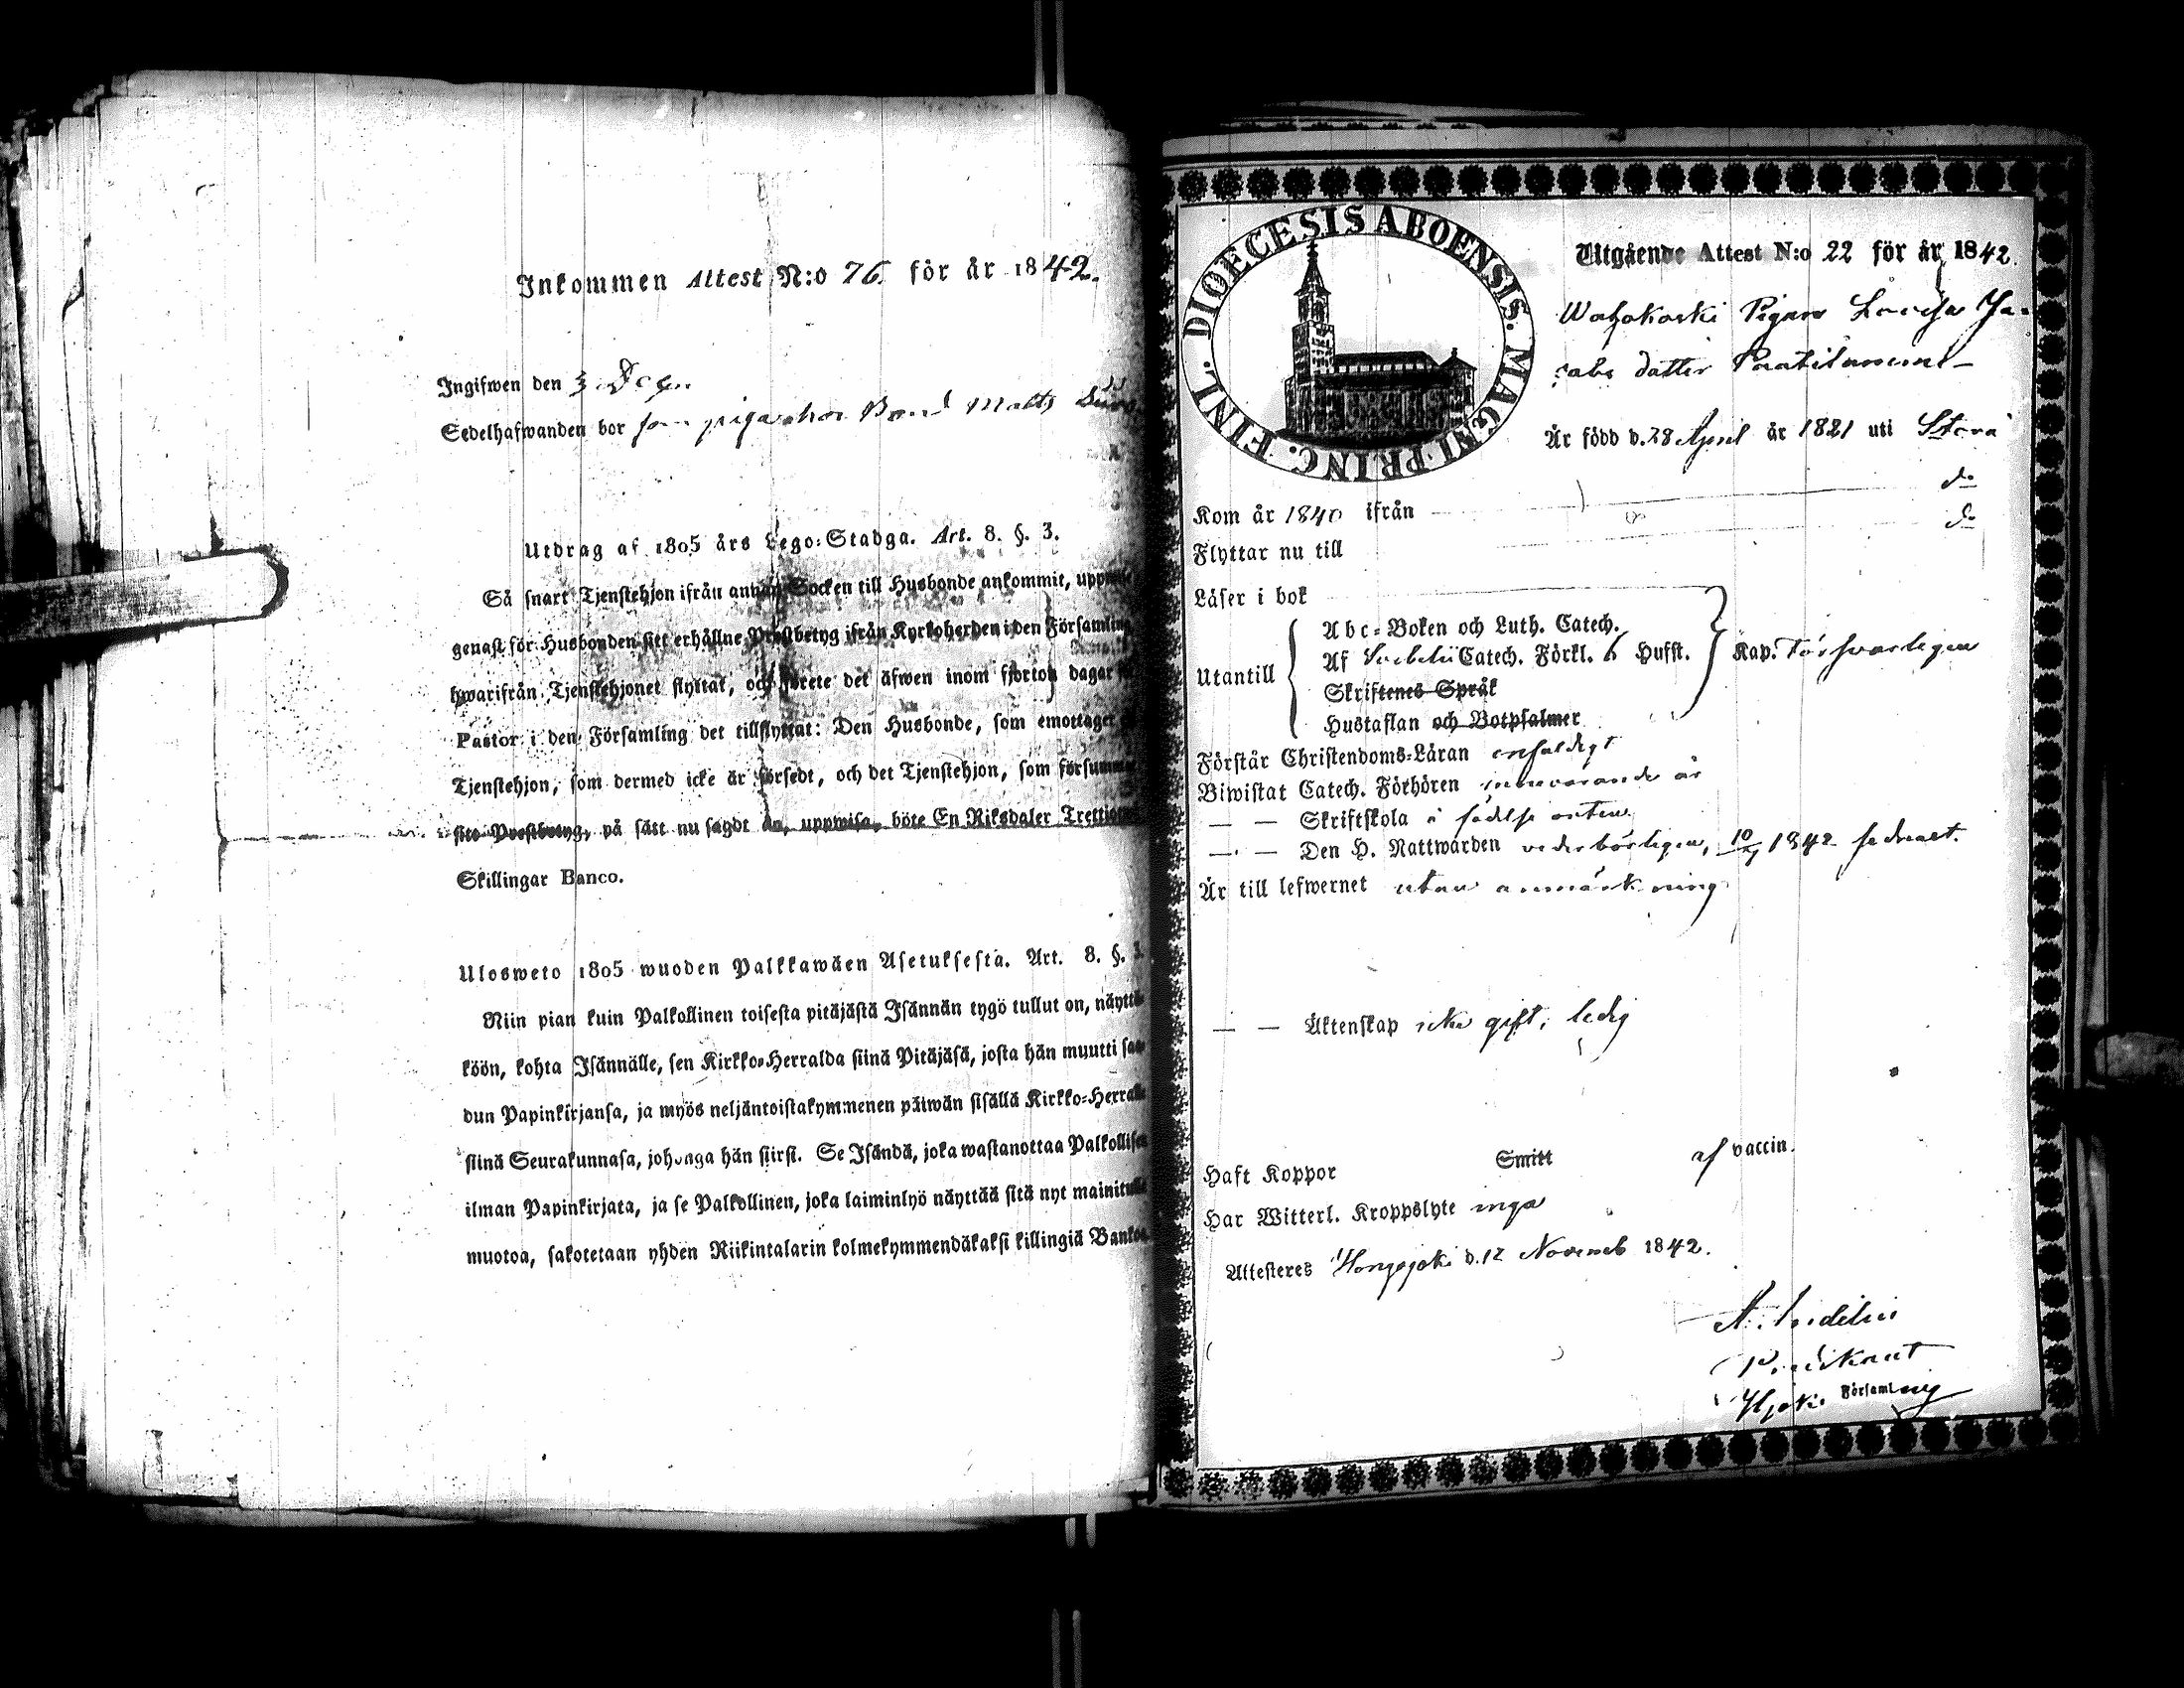 Inkommen Attest N:o 76. för år 1842.
Ingifwen den 3
Sedelhafwanden bor som piga hos Bond Matts
Utdrag af 1805 års Lego-Stadga. Art. 8. §. 3.
Så snart Tjenstehjon ifrån annan Socken till Husbonde ankommit,
genast för Husbonden sitt erhållne Prestbetyg ifrån Kyrkoherden i den Församling
hwarifrån Tjenstehjonet flyttat, och förete det äfwen inom fjorton dagar
Pastor i den Församling det tillflyttat: Den Husbonde, som emottager
Tjenstehjon, som dermed icke är försedt, och det Tjenstehjon, som
sitt Prestbetyg, på sätt nu sagdt är, uppwisa, böte En Riksdaler
Skillingar Banco.
Ulosweto 1805 wuoden Palkkawäen Asetuksesta. Art. 8. §. 3.
Niin pian kuin Palkollinen toisesta pitäjästä Isännän tygö tullut on, näyttä-
köön, kohta Isännälle, sen Kirkko-Herralda siinä Pitäjäsä, josta hän muutti saa-
dun Papinkirjansa, ja myös neljäntoistakymmenen päiwän sisällä Kirkko-Herralle
siinä Seurakunnasa, johonga hän siirsi. Se Isändä, joka wastanottaa Palkollisen
ilman Papinkirjata, ja se Palkollinen, joka laiminlyö näyttää sitä nyt mainitulla
muotoa, sakotetaan yhden Riikintalarin kolmekymmendäkaksi killingiä Bankos
DIOECESIS ABOENSIS. MAGNI PRINC. FINL.
Utgående Attest N:o 22 för år 1842.
Pigan Lovisa Ja-
cobs dotter
Är född d. 28 April år 1821 uti Storå
Kom år 1840 ifrån do
Flyttar nu till do
Läser i bok
Utantill
Abc-Boken och Luth. Catech.
Af Catech. Förkl. 6 Hufst.
Skriftenes Språk
Hustaflan och Botpsalmer
Kap. Försvarligen
Förstår Christendoms-Läran enfaldigt
Biwistat Catech. Förhören innevarande år
— — Skriftskola i födelse orten
— — Den H. Nattwarden vederbörligen, 1842 sednast.
Är till lefwernet utan anmärkning
— — Äktenskap icke gift, ledig
Haft Koppor Smitt af vaccin.
Har Witterl. Kroppslyte inga
Attesteres Hongojoki d. 12 Novemb 1842.
Predikant
Hjoki Församling